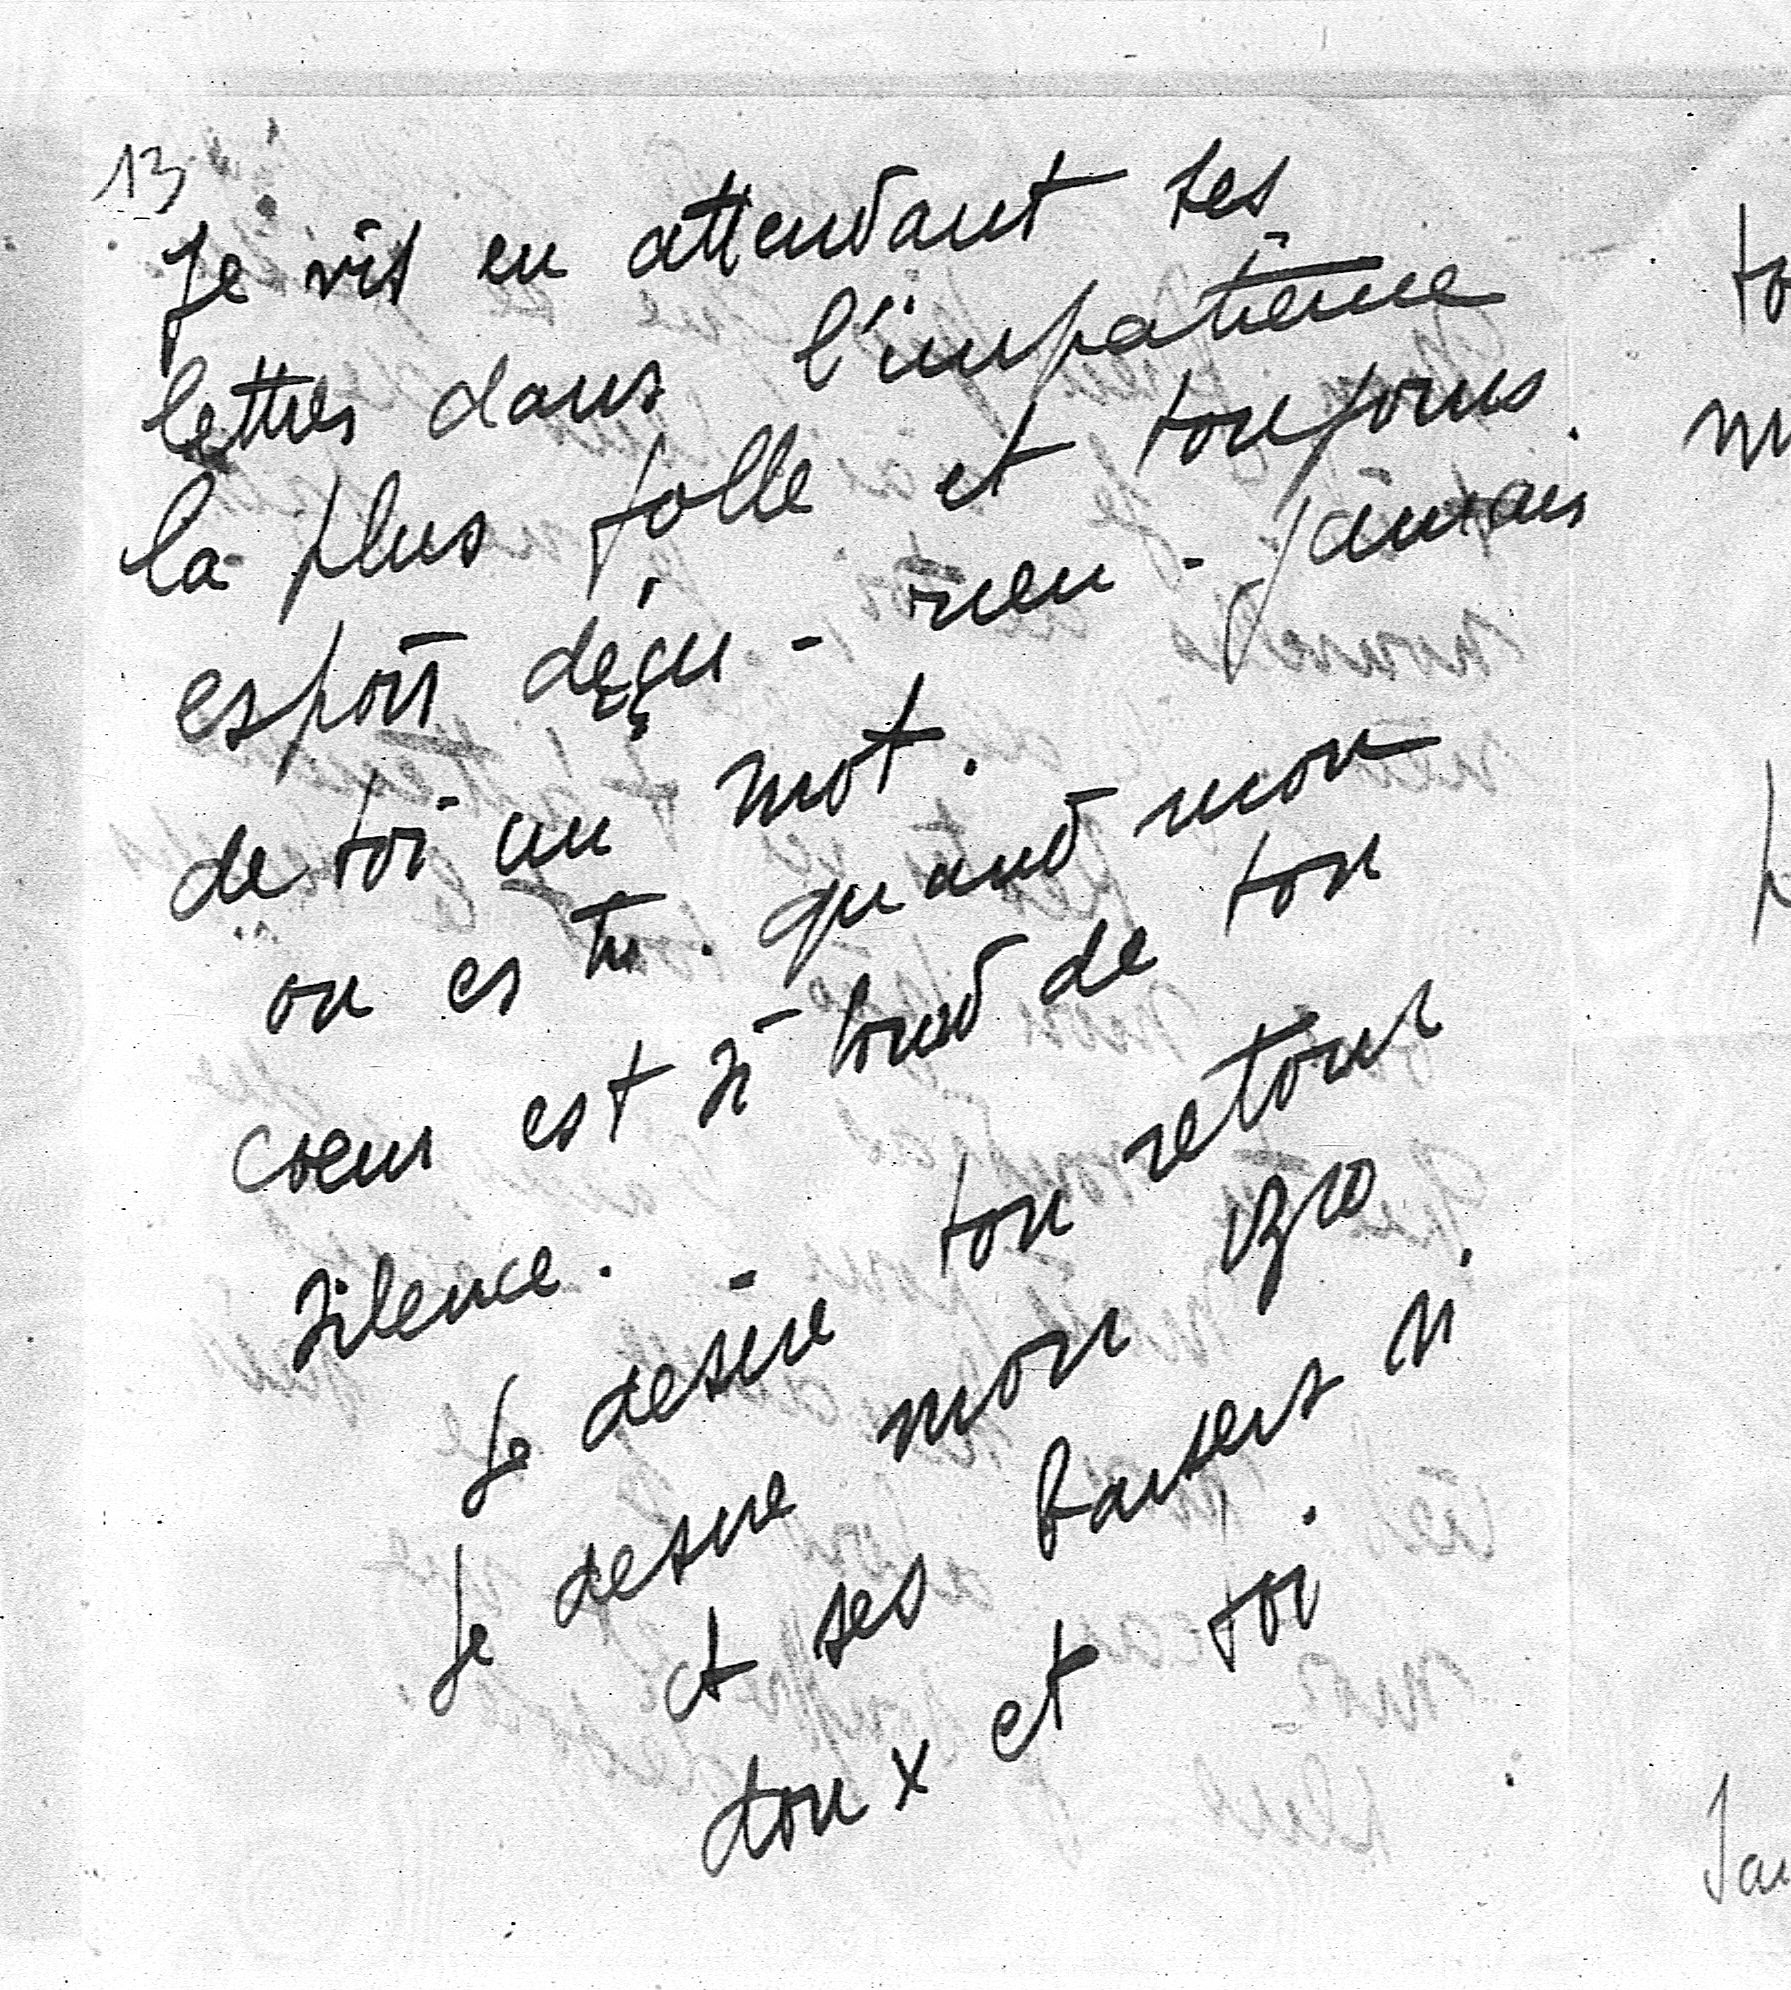 13
Je vis en attendant tes
lettres dans l'impatience
la plus folle et toujours
espoir déçu - rien - jamais
de toi un mot.
ou es tu. quand mon
coeur est si lourd de ton
silence.
Je desire ton retour
Je desire mon
et ses baisers si
doux et toi.